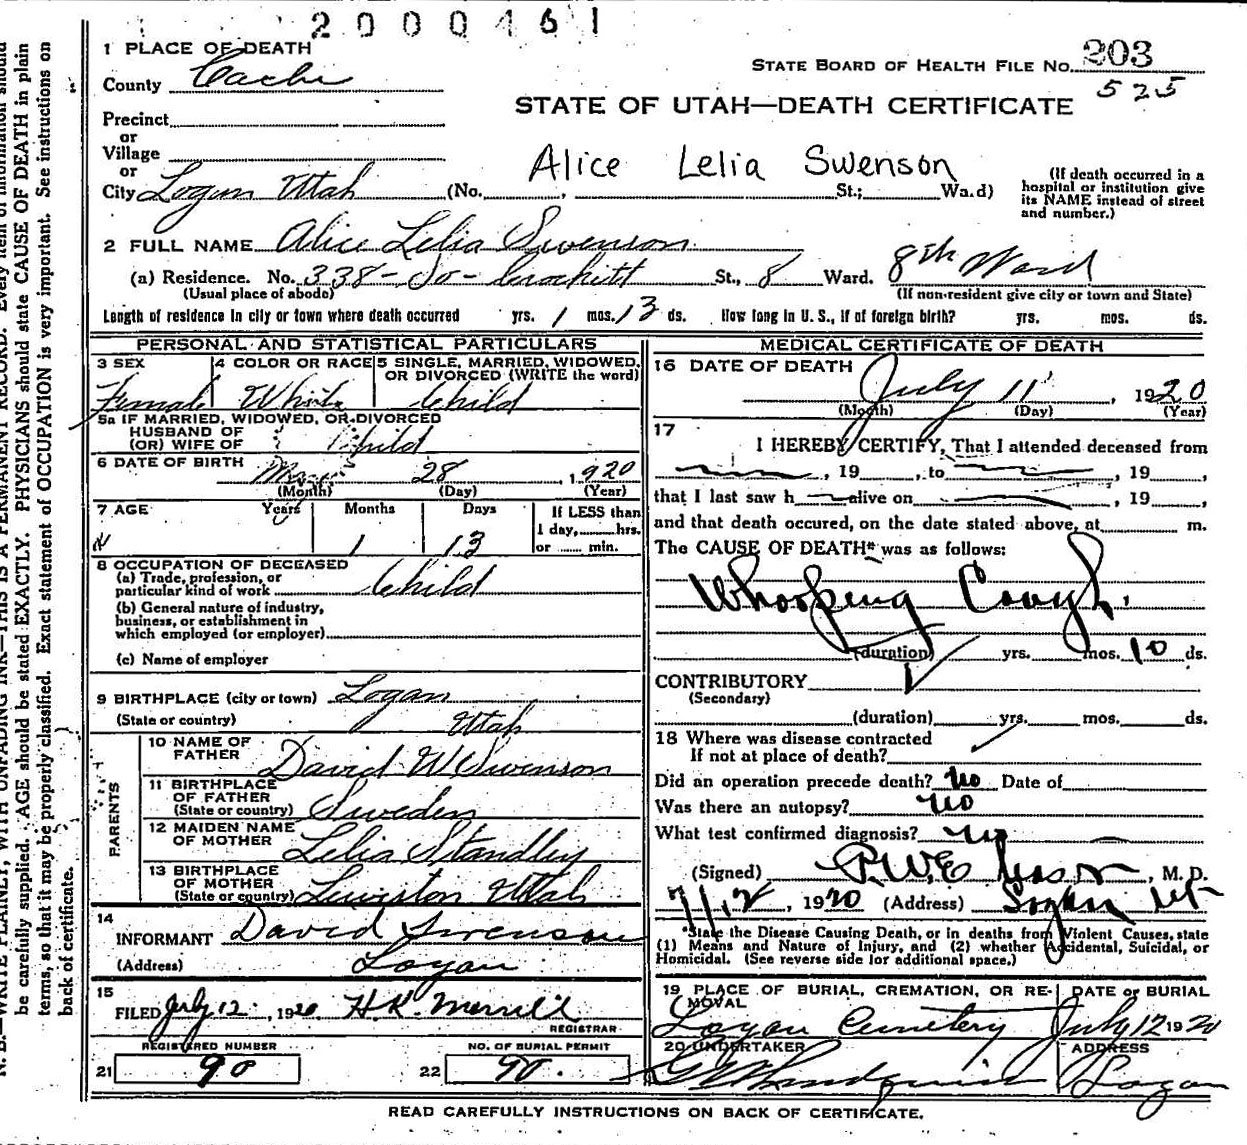 2000461
1 PLACE OF DEATH
County Cache
STATE BOARD OF HEALTH FILE No. 203
525
STATE OF UTAH—DEATH CERTIFICATE
Precinct
or
Village
or
City Logan Utah (No. , St.; Ward)
Alice Lelia Swenson
(If death occurred in a
hospital or institution give
its NAME instead of street
and number.)
2 FULL NAME Alice Lelia Swenson
(a) Residence. No. 338 - So - Crockett St., 8 Ward. 8th Ward
(Usual place of abode)
(If non-resident give city or town and State)
Length of residence in city or town where death occurred yrs. 1 mos. 13 ds. How long in U. S., if of foreign birth? yrs. mos. ds.
PERSONAL AND STATISTICAL PARTICULARS
3 SEX
Female
4 COLOR OR RACE
White
5 SINGLE, MARRIED, WIDOWED,
OR DIVORCED (WRITE the word)
Child
5a IF MARRIED, WIDOWED, OR DIVORCED
HUSBAND OF
(OR) WIFE OF Child
6 DATE OF BIRTH May 28, 1920
(Month) (Day) (Year)
7 AGE Years Months Days If LESS than
1 day, hrs.
or min.
1 13
8 OCCUPATION OF DECEASED
(a) Trade, profession, or
particular kind of work Child
(b) General nature of industry,
business, or establishment in
which employed (or employer)
(c) Name of employer
9 BIRTHPLACE (city or town) Logan
(State or country) Utah
PARENTS
10 NAME OF
FATHER David W Swenson
11 BIRTHPLACE
OF FATHER
(State or country) Sweden
12 MAIDEN NAME
OF MOTHER Lelia Standley
13 BIRTHPLACE
OF MOTHER
(State or country) Lewiston Utah
14
INFORMANT David Swenson
(Address) Logan
15
FILED July 12, 1920 H.K. Merrill
REGISTRAR
REGISTERED NUMBER
21 90
NO. OF BURIAL PERMIT
22 90.
MEDICAL CERTIFICATE OF DEATH
16 DATE OF DEATH
July 11, 1920
(Month) (Day) (Year)
17
I HEREBY CERTIFY, That I attended deceased from
, 19 , to , 19 ,
that I last saw h alive on , 19 ,
and that death occured, on the date stated above, at m.
The CAUSE OF DEATH* was as follows:
Whooping Cough.
(duration) yrs. mos. 10 ds.
CONTRIBUTORY
(Secondary)
(duration) yrs. mos. ds.
18 Where was disease contracted
If not at place of death?
Did an operation precede death? no Date of
Was there an autopsy? no
What test confirmed diagnosis? no
(Signed) , M. D.
7/12, 1920 (Address) Logan Ut
*State the Disease Causing Death, or in deaths from Violent Causes, state
(1) Means and Nature of Injury, and (2) whether Accidental, Suicidal, or
Homicidal. (See reverse side for additional space.)
19 PLACE OF BURIAL, CREMATION, OR RE-
MOVAL
Logan Cemetery
DATE OF BURIAL
July 12 1920
20 UNDERTAKER
ADDRESS
Logan
READ CAREFULLY INSTRUCTIONS ON BACK OF CERTIFICATE.
N. B.—WRITE PLAINLY, WITH UNFADING INK—THIS IS A PERMANENT RECORD. Every item of information should
be carefully supplied. AGE should be stated EXACTLY. PHYSICIANS should state CAUSE OF DEATH in plain
terms, so that it may be properly classified. Exact statement of OCCUPATION is very important. See instructions on
back of certificate.